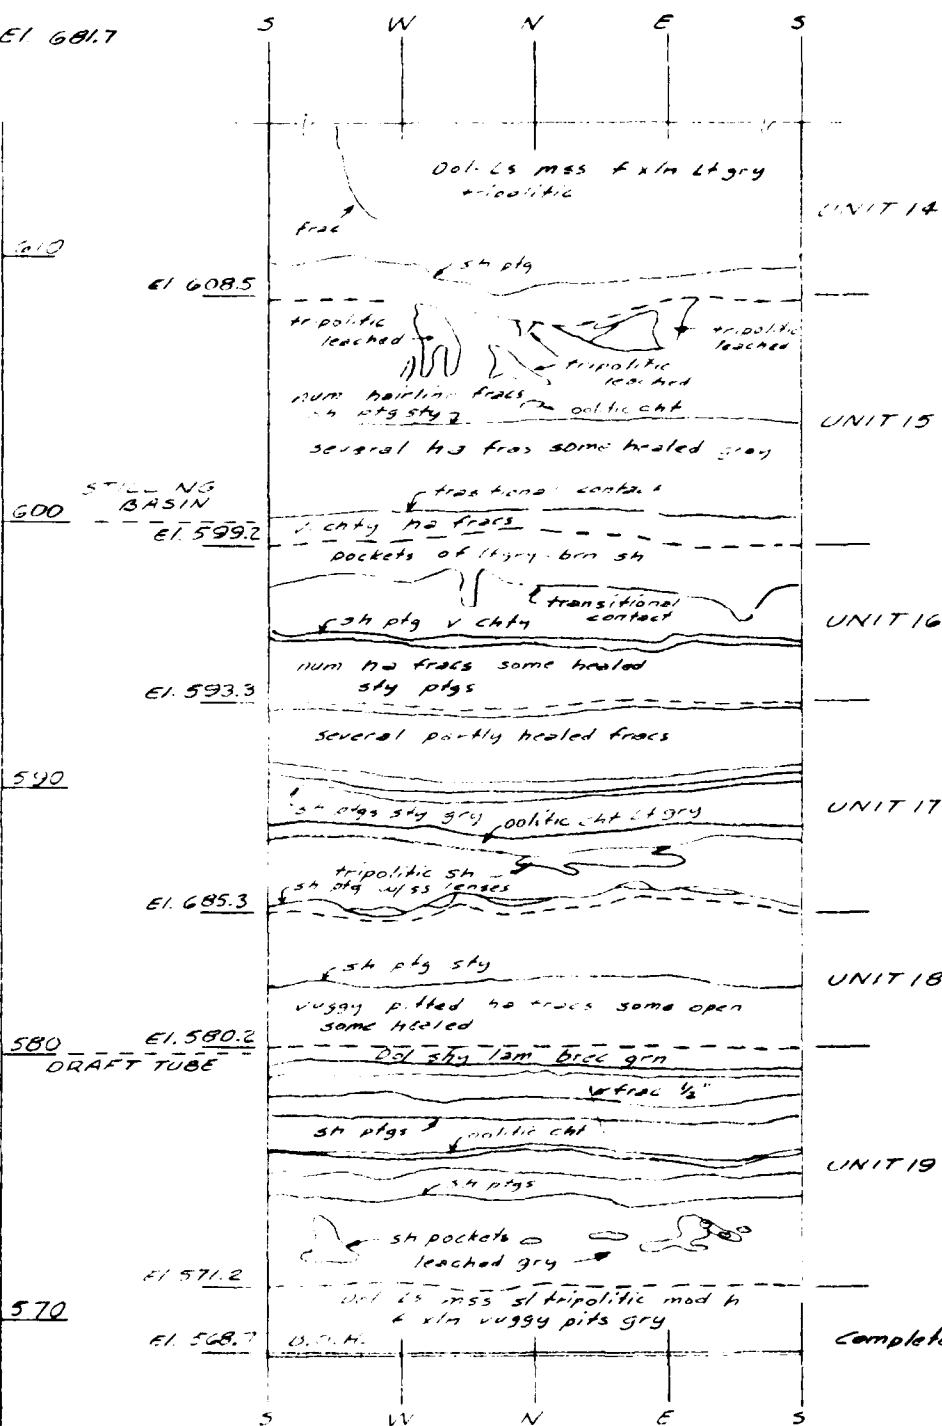 El 681.7
S W N E S
Dol. Ls mss f xln Lt gry
tripolitic
UNIT 14
frac
610
sh ptg
El 608.5
tripolitic
leached
tripolitic
leached
tripolitic
leached
num hairline fracs
sh ptg sty
oolitic cht
UNIT 15
several ha fras some healed gray
STILL NG
BASIN
contact
600
El. 599.2
v. chty ha fracs
pockets of lt gry-brn sh
transitional
contact
sh ptg v chty
UNIT 16
num ha fracs some healed
sty ptgs
El. 593.3
several partly healed fracs
590
sh ptgs sty gry
oolitic cht Lt gry
UNIT 17
tripolitic sh
sh ptg w/ss lenses
El. 685.3
sh ptg sty
UNIT 18
vuggy pitted ha fracs some open
some healed
El. 580.2
580
DRAFT TUBE
Dol shy lam brec grn
frac ½"
sh ptgs
oolitic cht
UNIT 19
sh ptgs
sh pockets
leached gry
El 571.2
Dol Ls mss sl tripolitic mod h
f xln vuggy pits gry
570
El. 568.7
B.O.H.
Complete
S W N E S